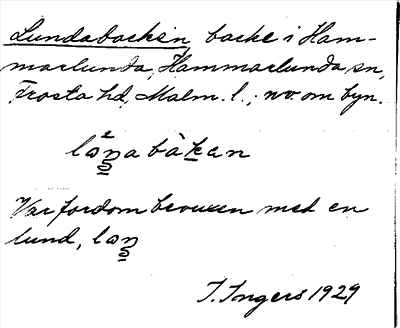 Lundabacken, backe i Ham-
marlunda, Hammarlunda sn,
Frosta hd, Malm. l.; nv. om byn.
Var fordom bevuxen med en
lund,
I. Ingers 1929